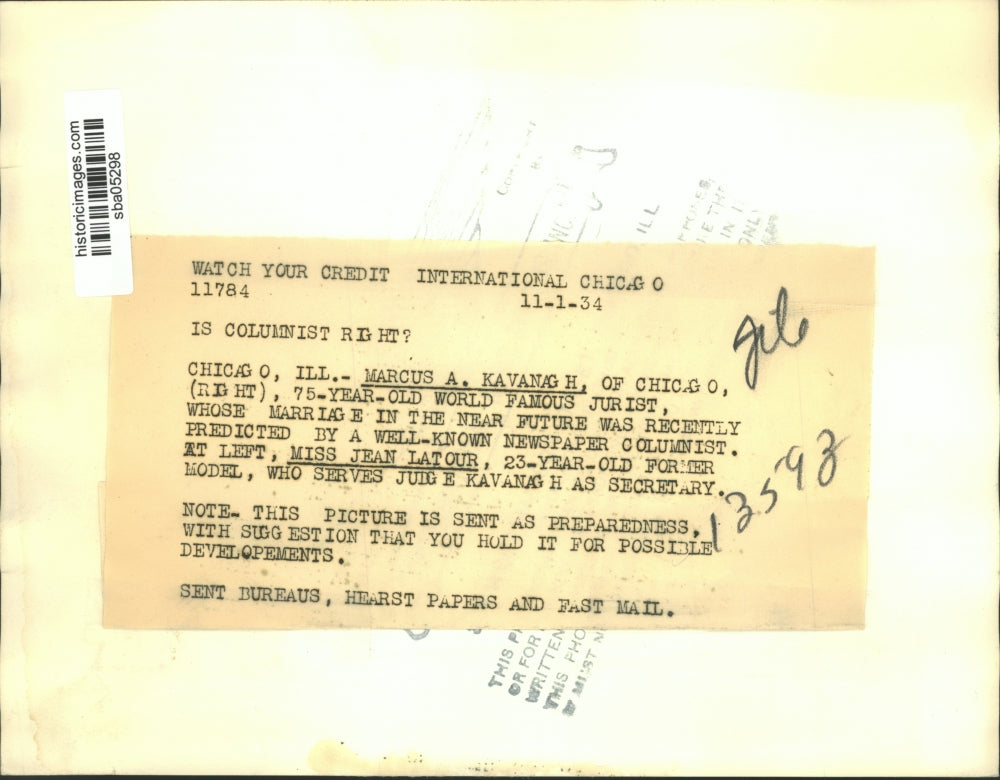 historicimages.com
sba05298
ILL
IN
ONLY
WATCH YOUR CREDIT INTERNATIONAL CHICAGO
11784 11-1-34
IS COLUMNIST RIGHT?
file
CHICAGO, ILL.- MARCUS A. KAVANAGH, OF CHICAGO,
(RIGHT), 75-YEAR-OLD WORLD FAMOUS JURIST,
WHOSE MARRIAGE IN THE NEAR FUTURE WAS RECENTLY
PREDICTED BY A WELL-KNOWN NEWSPAPER COLUMNIST.
AT LEFT, MISS JEAN LATOUR, 23-YEAR-OLD FORMER
MODEL, WHO SERVES JUDGE KAVANAGH AS SECRETARY.
13593
NOTE- THIS PICTURE IS SENT AS PREPAREDNESS,
WITH SUGGESTION THAT YOU HOLD IT FOR POSSIBLE
DEVELOPEMENTS.
SENT BUREAUS, HEARST PAPERS AND FAST MAIL.
THIS
OR FOR
WRITTEN
THIS PHO
MUST